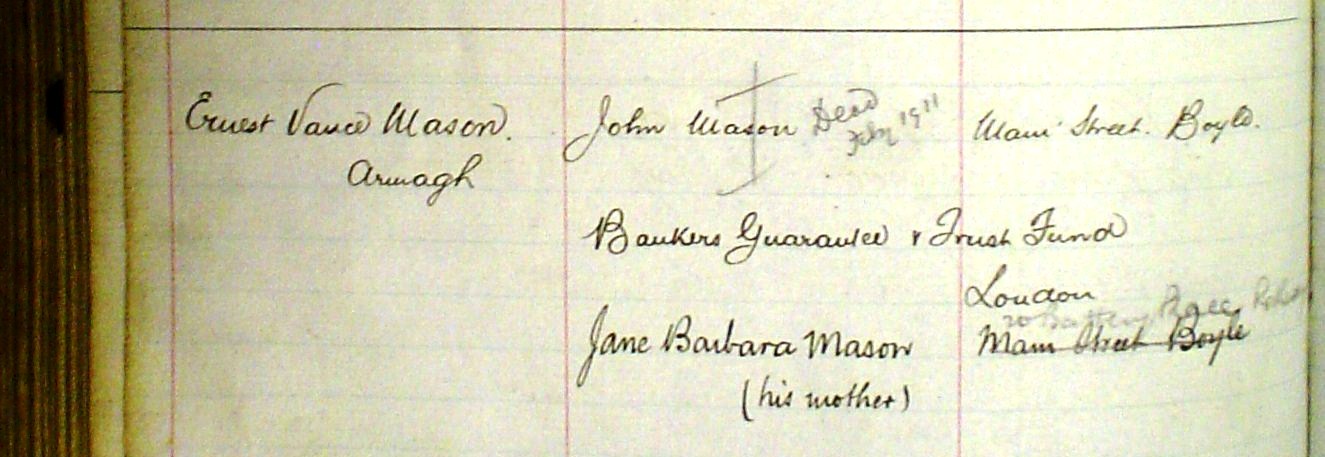 Ernest Vance Mason. John Mason Dead Main Street. Boyle.
Feby 1911
Armagh
Bankers Guarantee & Trust Fund
London
20 Battery Race
Jane Barbara Mason Main Street Boyle
(his mother)